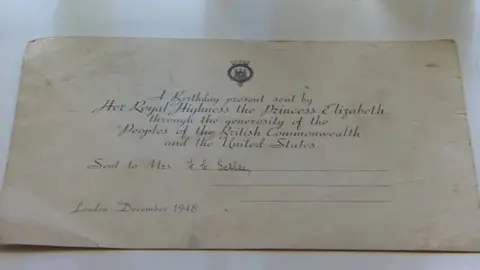 A Birthday present sent by
Her Royal Highness the Princess Elizabeth
through the generosity of the
Peoples of the British Commonwealth
and the United States.
Sent to Mrs
London December 1948